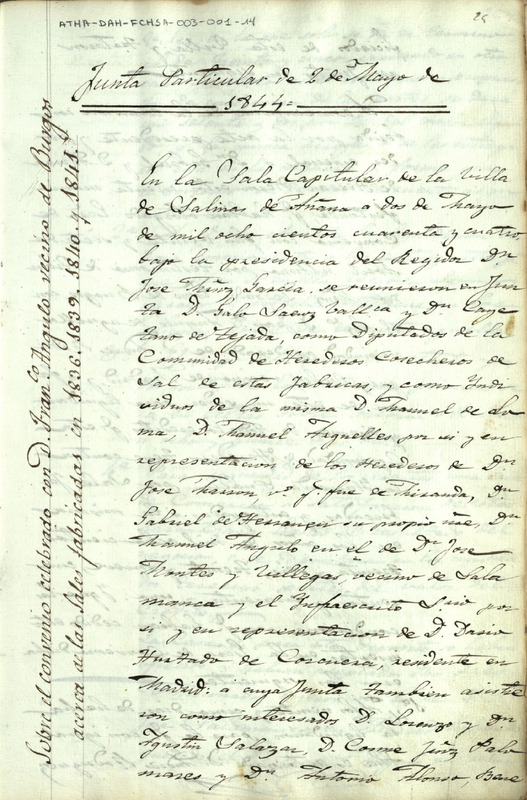 ATHA-DAH-FCHSA-003-001-14
25
Junta Particular de 2 de Mayo de
1844=
Sobre el convenio celebrado con D. Fran.co Angulo vecino de Burgos
acerca de las Sales fabricadas en 1838. 1839. 1840. y 1841.
En la Sala Capitular de la Villa
de Salinas de Añana a dos de Mayo
de mil ocho cientos cuarenta y cuatro
bajo la presidencia del Regidor Dn
Jose García, se reunieron en Jun
ta D. Galo Saenz Vallca y Dn Caye
tano de Tejada, como Diputados de la
Comunidad de Herederos Cosecheros de
Sal de estas Fabricas, y como Yndi
viduos de la misma D. Manuel de Lo
ma, D. Manuel Arguelles por si y en
representacion de los Herederos de Dn
Jose Marron, vo. q. fue de Miranda, Dn
Gabriel de Herran su propio Dn
Manuel Angulo en el de Dn Jose
Montes y Villegas, vecino de Sala
manca y el Ynfraescrito S.rio por
si y en representacion de D. Dario
Hurtado de Corcuera, residente en
Madrid: á cuya Junta tambien asistie
ron como interesados D. Lorenzo y Dn
Agustin Salazar, D. Cosme Palo
mares y Dn Antonio Alonso, Bene